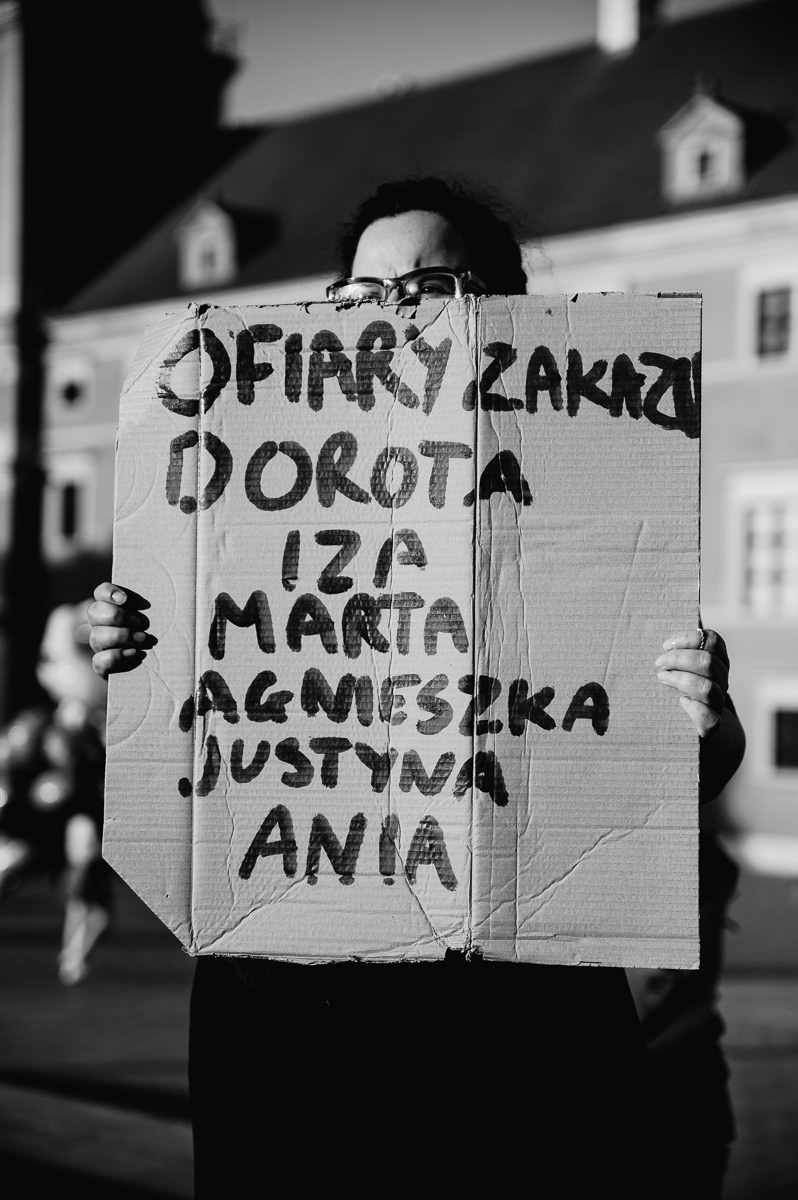 OFIARY ZAKAZU
DOROTA
IZA
MARTA
AGNIESZKA
JUSTYNA
ANIA